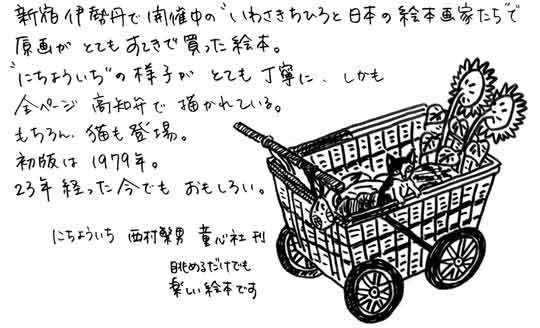 新宿 伊勢丹で 開催中の "いわさきちひろと 日本の 絵本画家たち" で
原画が とても すてきで 買った 絵本。
"にちよういち" の 様子が とても 丁寧に、しかも
全ページ 高知弁で 描かれている。
もちろん、猫も 登場。
初版は 1979年。
23年 経った 今でも おもしろい。
にちよういち 西村繁男 童心社 刊
眺めるだけでも
楽しい 絵本です